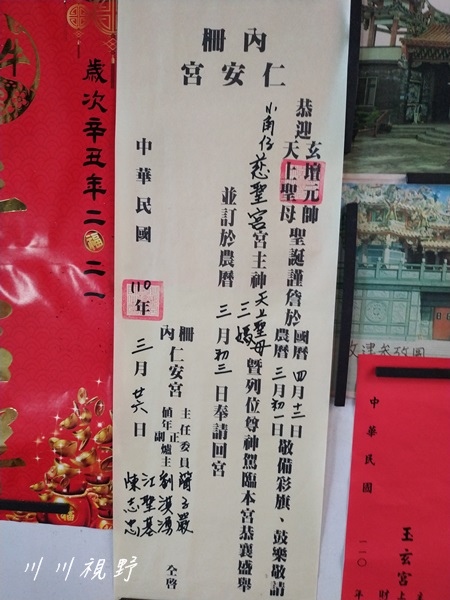 內柵
仁安宮
恭迎玄壇元帥
天上聖母
聖誕謹詹於
國曆四月十二日
農曆三月初一日
敬備彩旗、鼓樂敬請
小角仔慈聖宮宮主神天上聖母
三媽
暨列位尊神駕臨本宮恭襄盛舉
並訂於農曆三月初三日奉請回宮
內柵仁安宮
主任委員
值年正副爐主
江聖基
陳志忠
仝啓
中華民國110年三月廿六日
歲次辛丑年二福二一
中華民國一一〇年
玉玄宮
川川視野